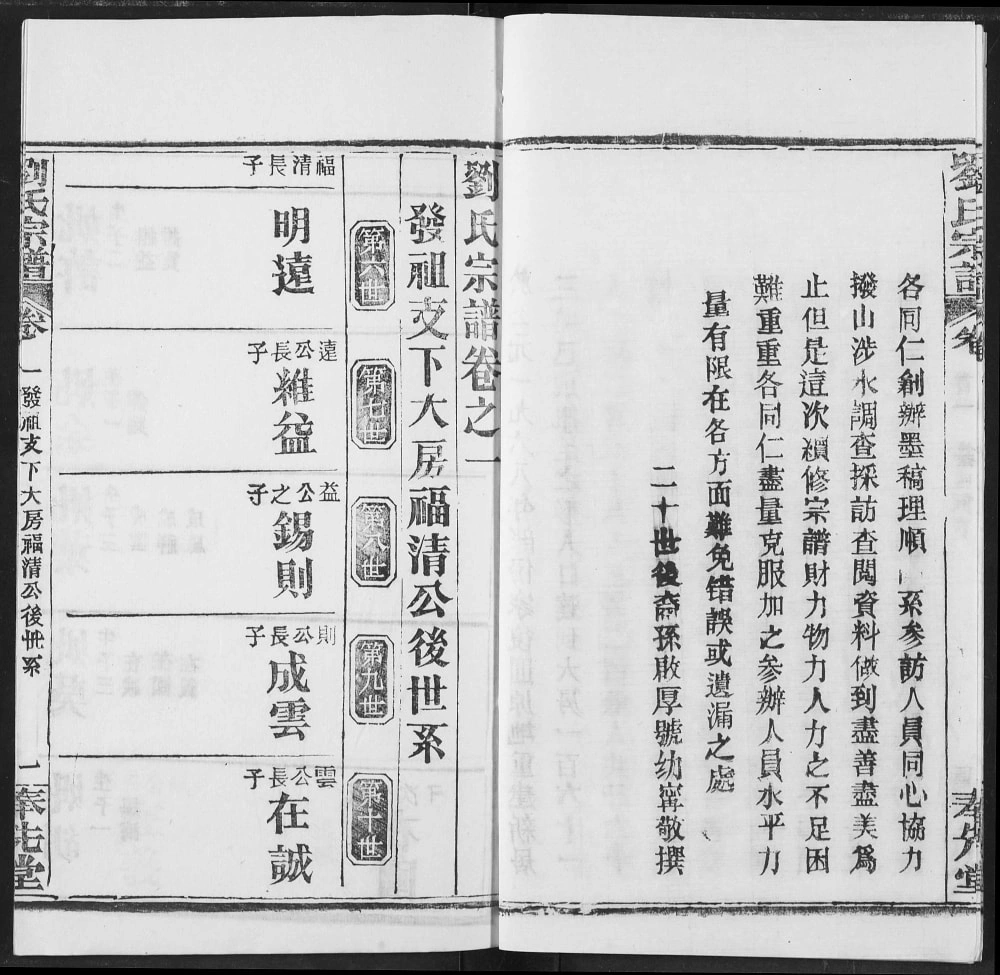 劉氏宗譜
卷
各同仁創辦墨稿理順系參訪人員同心協力
撥山涉水調查採訪查閱資料做到盡善盡美爲
止但是這次續修宗譜財力物力人力之不足困
難重重各同仁盡量克服加之參辦人員水平力
量有限在各方面難免错誤或遺漏之處
二十世後裔孫敢厚號幼寗敬撰
劉氏宗譜卷之一
發祖支下大房福清公後世系
第六世
第七世
第八世
第九世
第十世
福清長子
明遠
遠公長子
維益
益公之子
錫則
則公長子
成雲
雲公長子
在誠
劉氏宗譜
卷一
發祖支下大房福清公後世系
一
奉先堂